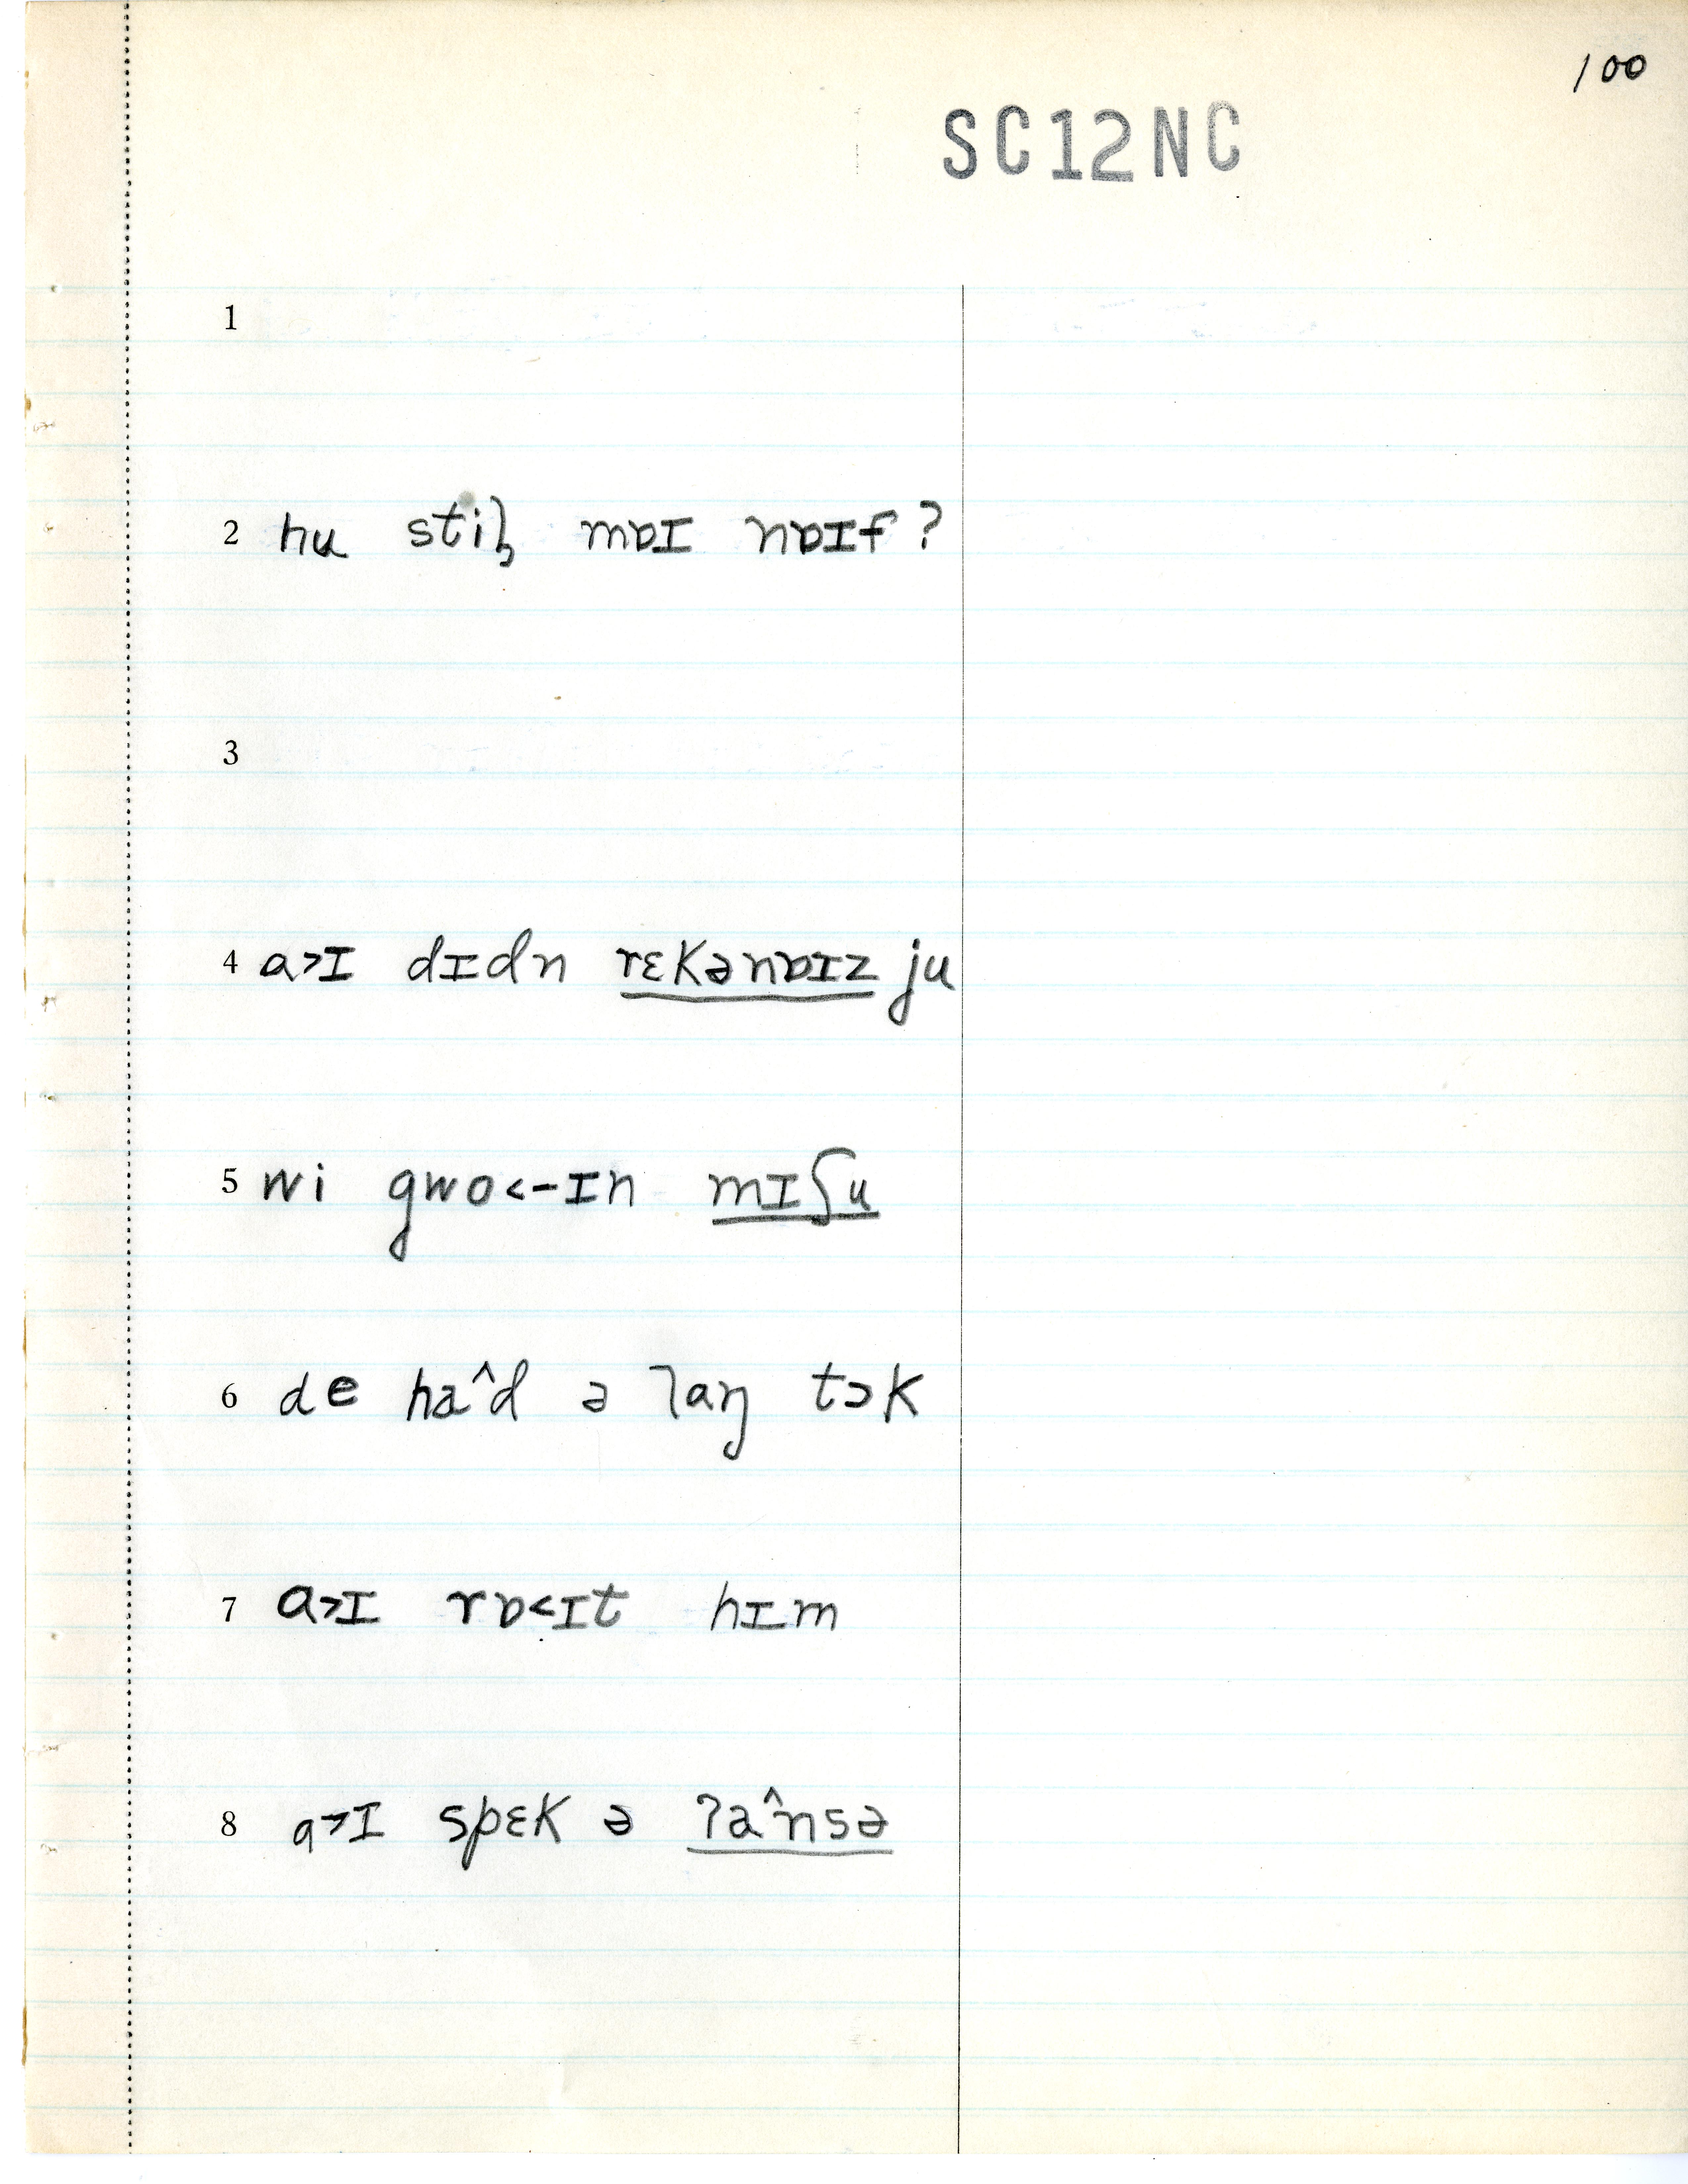 100
SC12NC
1
2 hu stiɫ̥ mɒɪ nɒɪf ?
3
4 a>ɪ dɪdn rɛkənɒɪz ju
5 wi gwo<-ɪn mɪʃu
6 de ha^d ə laŋ tɔk
7 a>ɪ rɒ<ɪt hɪm
8 a>ɪ spɛk ə ʔa^nsə